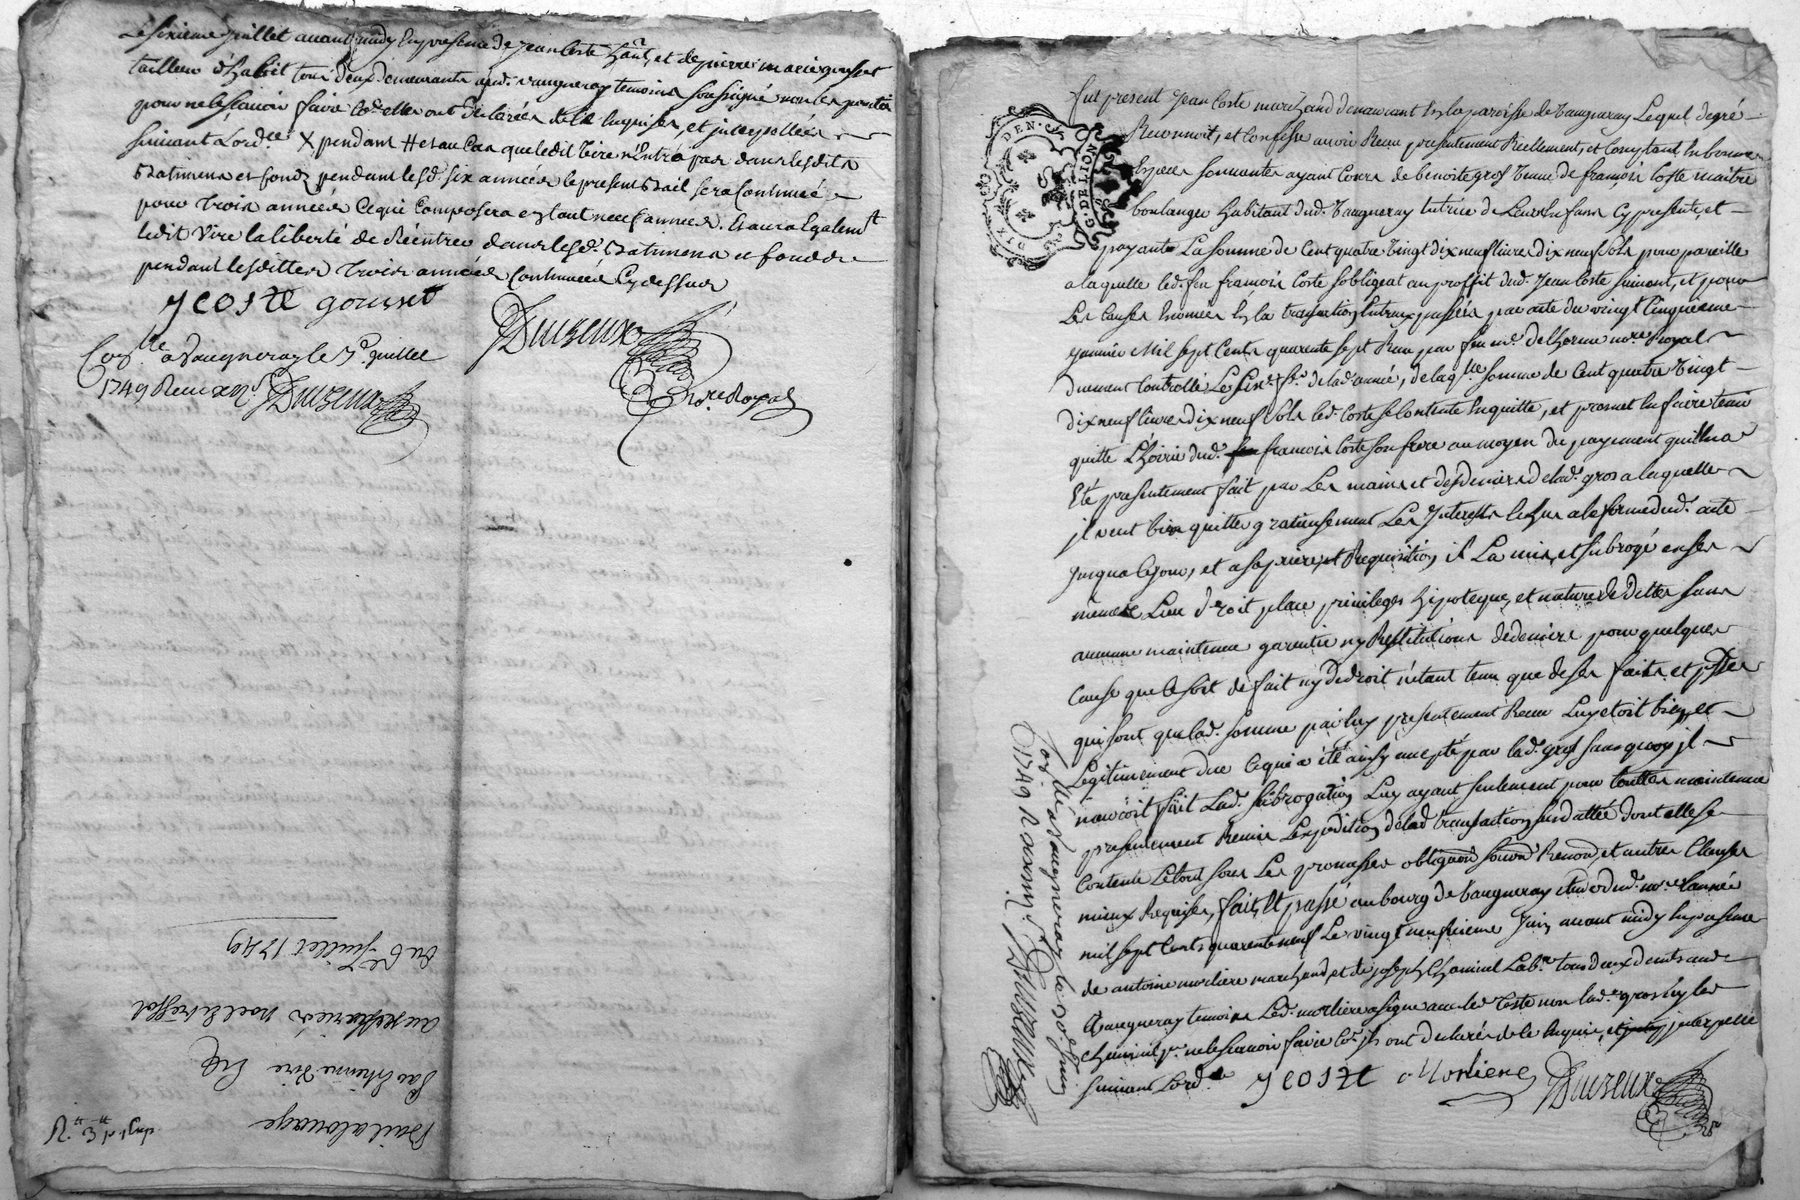 Le sixieme Juillet avant midy En presence de Jean Coste et de pierre marie gousset
tailleur d'habit tous deux demeurants aud. vaugneray temoins soussigné non les parties
pour ne le scavoir faire Co.e elles ont declarées de ce Enquises, et interpellées
suivant L'ord.ce X pendant # et au Cas que ledit Vire n'Entra pas dans lesdits
Batimens et fonds pendant lesd. six années le present Bail sera Continué
pour trois années Ce qui Composera en tout neuf années. Et aura Egalem.t
ledit Vire la liberté de Réentrer dans lesd. Batimens et fonds
pendant lesdittes trois années Continuées Cy dessus
J COSTE gousset
Duizeux
no.re Royal
Con.llé a Vaugneray le 7.e Juillet
1749 Receu Duizeux
Du 6.e Juillet 1749
Bail a louage
Par Estienne Vire
DEN.
G. DE LION
DIX
fut present Jean Coste marchand demeurant En la paroisse de Vaugneray Lequel de gré
Reconnoit, et Confesse avoir Receu presentement Reellement, et Comptant En bonnes
Especes sonnantes ayant Cours de benoite gros Veuve de françois Coste maitre
boulanger habitant dud. Vaugneray tutrice de Leurs Enfans Cy presente, et
payante La somme de Cent quatre Vingt dix neuf livres dix neuf sols pour pareille
a laquelle led. feu françois Coste s'obligeat au proffit dud. Jean Coste suivant, et pour
Les Causes Enoncées En la transaction Entreux passée par acte du vingt Cinquieme
Janvier Mil sept Cents quarente sept Receu par feu m.e Delhorme no.re Royal
duement Controllé Le six.e fév.r de lad. année, de laq.lle somme de Cent quatre Vingt
dix neuf livres dix neuf sols led. Coste se Contente En quitte, et promet En faire tenir
quitte L'hoirie dud. françois Coste son frere au moyen du payement qui lui a
Eté presentement fait par Les mains et des deniers de lad. gros a laquelle
il veut bien quitter gratieusement Les Interests Echus a la forme dud. acte
jusqua Ce jour, et a sa priere, et Requisition il La mis, et subrogé en ses
mêmes Lieu droit place privileges hipoteques, et nature de dettes sans
aucune maintenue garentie ny Restitutions de deniers pour quelque
Cause que Ce soit de fait ny de droit n'étant tenu que de ses faits et p.sses
qui sont que lad. somme par luy presentement Receu Luy etoit bien, et
Legitimement due Ce qui a été ainsy accepté par lad. gros sans quoy il
n'auroit fait Lad. subrogation Luy ayant seulement pour touttes maintenue
presentement Remis L'expedition de lad. transaction susdattée dont elle se
Contente Le tout sous Les promesses obligaõns soumõns Renonõns, et autres Clauses
mieux Requises, fait, Et passé au bourg de Vaugneray Etude dud. no.re L'année
mil sept Cents quarente neuf Le vingt neufvieme Juin avant midy En presence
de antoine morliere marchand, et de joseph Chaminel Lab.r tous deux demeurants
a Vaugneray temoins Led. morliere a signe avec led. Coste non lad. gros ny led
Chaminel p.r ne le scavoir faire Co.e ils ont declarés de ce Enquis, et interpellé
suivant L'ord.ce J COSTE Morliere Duizeux
Con.llé a Vaugneray le 30.e Juin
1749 Receu Duizeux